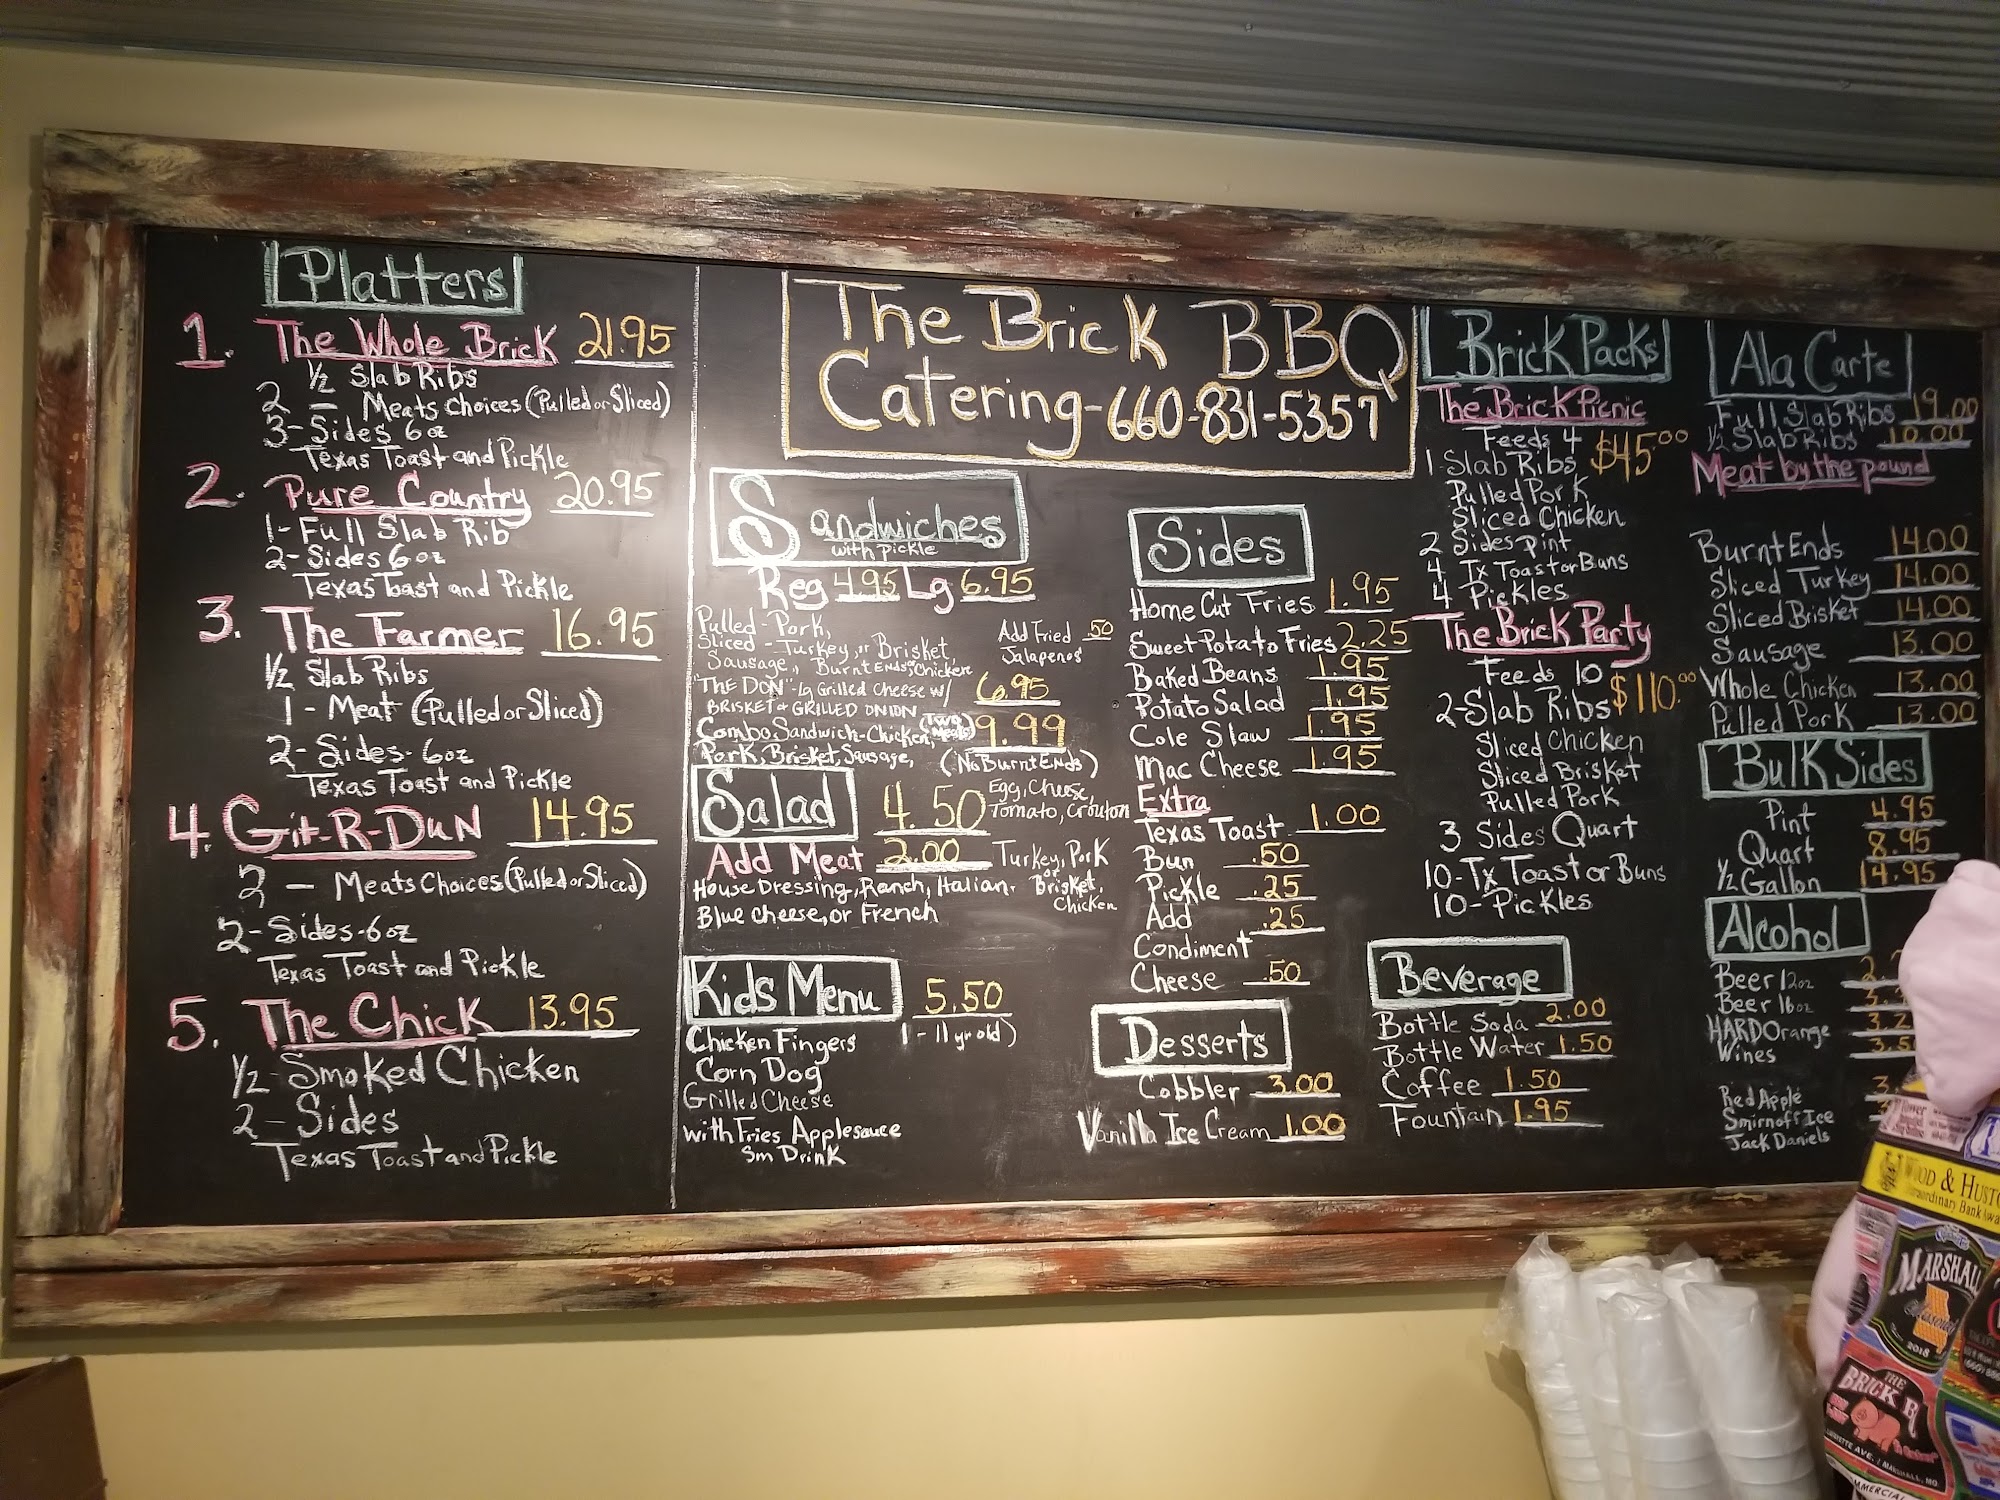 Platters
1. The Whole Brick 21.95
1/2 Slab Ribs
2 - Meats Choices (Pulled or Sliced)
3-Sides 6oz
Texas Toast and Pickle
2. Pure Country 20.95
1- Full Slab Rib
2-Sides 6oz
Texas Toast and Pickle
3. The Farmer 16.95
1/2 Slab Ribs
1 - Meat (Pulled or Sliced)
2- Sides- 6oz
Texas Toast and Pickle
4. Git-R-Dun 14.95
2 - Meats Choices (Pulled or Sliced)
2-Sides-6oz
Texas Toast and Pickle
5. The Chick 13.95
1/2 Smoked Chicken
2- Sides
Texas Toast and Pickle
The Brick BBQ
Catering-660-831-5357
Sandwiches
with pickle
Reg 4.95 Lg 6.95
Pulled-Pork,
Sliced - Turkey, or Brisket,
Sausage, Burnt Ends or Chicken
Add Fried .50
Jalapenos
"THE DON"-Lg Grilled Cheese w/ 6.95
BRISKET & GRILLED ONION
Combo Sandwich-Chicken, (Two Meats) 9.99
Pork, Brisket, Sausage, (No Burnt Ends)
Salad 4.50
Egg, Cheese,
Tomato, Crouton
Add Meat 2.00 Turkey, Pork
or Brisket,
Chicken
House Dressing, Ranch, Italian.
Blue Cheese, or French
Kids Menu 5.50
1 - 11 yr old)
Chicken Fingers
Corn Dog
Grilled Cheese
with Fries Applesauce
Sm Drink
Sides
Home Cut Fries 1.95
Sweet Potato Fries 2.25
Baked Beans 1.95
Potato Salad 1.95
Cole Slaw 1.95
Mac Cheese 1.95
Extra
Texas Toast 1.00
Bun .50
Pickle .25
Add .25
Condiment
Cheese .50
Desserts
Cobbler 3.00
Vanilla Ice Cream 1.00
Brick Packs
The Brick Picnic
Feeds 4 $45.00
1-Slab Ribs
Pulled Pork
Sliced Chicken
2 Sides pint
4 Tx Toast or Buns
4 Pickles
The Brick Party
Feeds 10 $110.00
2-Slab Ribs
Sliced Chicken
Sliced Brisket
Pulled Pork
3 Sides Quart
10-Tx Toast or Buns
10-Pickles
Beverage
Bottle Soda 2.00
Bottle Water 1.50
Coffee 1.50
Fountain 1.95
Ala Carte
Full Slab Ribs 19.00
1/2 Slab Ribs 10.00
Meat by the pound
Burnt Ends 14.00
Sliced Turkey 14.00
Sliced Brisket 14.00
Sausage 13.00
Whole Chicken 13.00
Pulled Pork 13.00
Bulk Sides
Pint 4.95
Quart 8.95
1/2 Gallon 14.95
Alcohol
Beer 12oz 2.
Beer 16oz
HARD Orange 3.2
Wines 3.5
Red Apple 3.
Smirnoff Ice
Jack Daniels
& HUST
MARSHAL
2018
THE
BRICK B
LAFAYETTE AVE. / MARSHALL, MO.